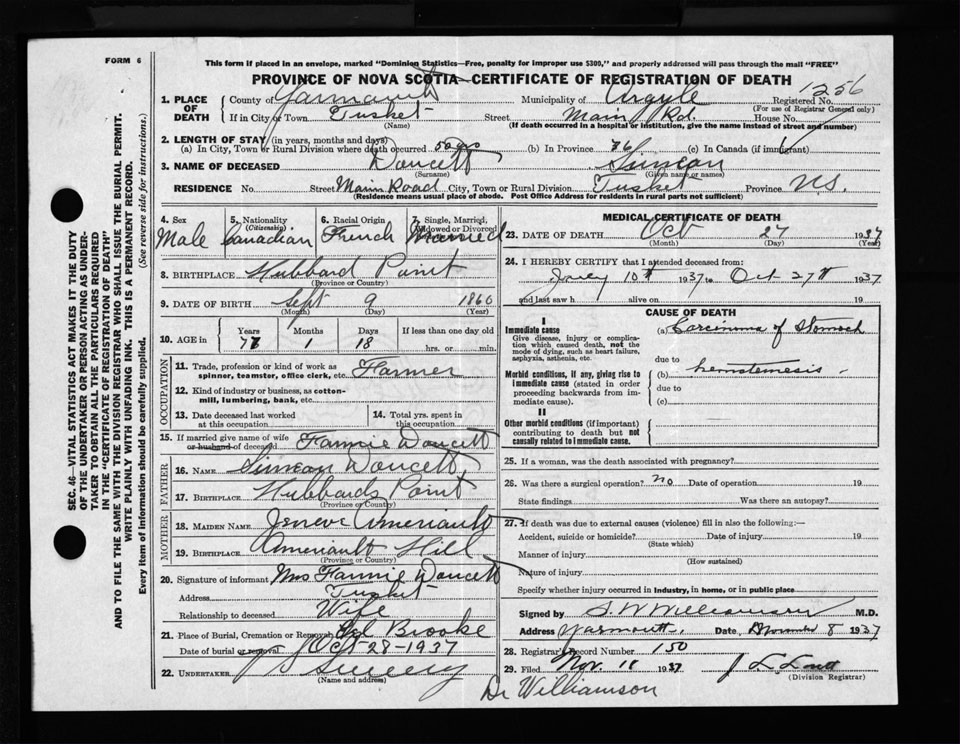 FORM 6
This form if placed in an envelope, marked "Dominion Statistics—Free, penalty for improper use $300," and properly addressed will pass through the mail "FREE"
PROVINCE OF NOVA SCOTIA—CERTIFICATE OF REGISTRATION OF DEATH
1256
1. PLACE OF DEATH County of Yarmouth Municipality of Argyle Registered No.
(For use of Registrar General only)
If in City or Town Tusket Street Main Rd. House No.
(Name) (If death occurred in a hospital or institution, give the name instead of street and number)
2. LENGTH OF STAY (in years, months and days)
(a) In City, Town or Rural Division where death occurred 50 yrs (b) In Province 76 (c) In Canada (if immigrant)
3. NAME OF DECEASED Doucett Simeon
(Surname) (Given name or names)
RESIDENCE No. Street Main Road City, Town or Rural Division Tusket Province N.S.
(Residence means usual place of abode. Post Office Address for residents in rural parts not sufficient)
4. Sex Male
5. Nationality (Citizenship) Canadian
6. Racial Origin French
7. Single, Married, Widowed or Divorced Married
8. BIRTHPLACE Hubbard Point
(Province or Country)
9. DATE OF BIRTH Sept 9 1860
(Month) (Day) (Year)
10. AGE in Years 77 Months 1 Days 18 If less than one day old hrs. or min.
OCCUPATION
11. Trade, profession or kind of work as spinner, teamster, office clerk, etc. Farmer
12. Kind of industry or business, as cotton-mill, lumbering, bank, etc.
13. Date deceased last worked at this occupation
14. Total yrs. spent in this occupation
15. If married give name of wife or husband of deceased Fannie Doucett
FATHER
16. NAME Simeon Doucett
17. BIRTHPLACE Hubbards Point
(Province or Country)
MOTHER
18. MAIDEN NAME Jeneve Ameriault
19. BIRTHPLACE Ameriault Hill
(Province or Country)
20. Signature of informant Mrs Fannie Doucett
Address Tusket
Relationship to deceased Wife
21. Place of Burial, Cremation or Removal Eel Brooke
Date of burial or removal Oct-28-1937
22. UNDERTAKER Sweeny
(Name and address)
MEDICAL CERTIFICATE OF DEATH
23. DATE OF DEATH Oct 27 1937
(Month) (Day) (Year)
24. I HEREBY CERTIFY that I attended deceased from:
July 10th 1937 to Oct 27th 1937
and last saw h alive on 19
CAUSE OF DEATH
I
Immediate cause
Give disease, injury or complication which caused death, not the mode of dying, such as heart failure, asphyxia, asthenia, etc.
(a) Carcinoma of Stomach
due to
Morbid conditions, if any, giving rise to immediate cause (stated in order proceeding backwards from immediate cause).
(b) hemotemesis
due to
(c)
II
Other morbid conditions (if important) contributing to death but not causally related to immediate cause.
25. If a woman, was the death associated with pregnancy?
26. Was there a surgical operation? no Date of operation 19
State findings Was there an autopsy?
27. If death was due to external causes (violence) fill in also the following:—
Accident, suicide or homicide? Date of injury 19
(State which)
Manner of injury
(How sustained)
Nature of injury
Specify whether injury occurred in Industry, in home, or in public place
Signed by S. W. Williamson M.D.
Address Yarmouth, Date November 8 1937
28. Registrar's Record Number 150
29. Filed Nov. 11 1937
(Division Registrar)
Dr Williamson
SEC. 46—VITAL STATISTICS ACT MAKES IT THE DUTY
OF THE UNDERTAKER OR PERSON ACTING AS UNDER-
TAKER TO OBTAIN ALL THE PARTICULARS REQUIRED
IN THE "CERTIFICATE OF REGISTRATION OF DEATH"
AND TO FILE THE SAME WITH THE DIVISION REGISTRAR WHO SHALL ISSUE THE BURIAL PERMIT.
WRITE PLAINLY WITH UNFADING INK. THIS IS A PERMANENT RECORD.
Every item of information should be carefully supplied. (See reverse side for instructions.)